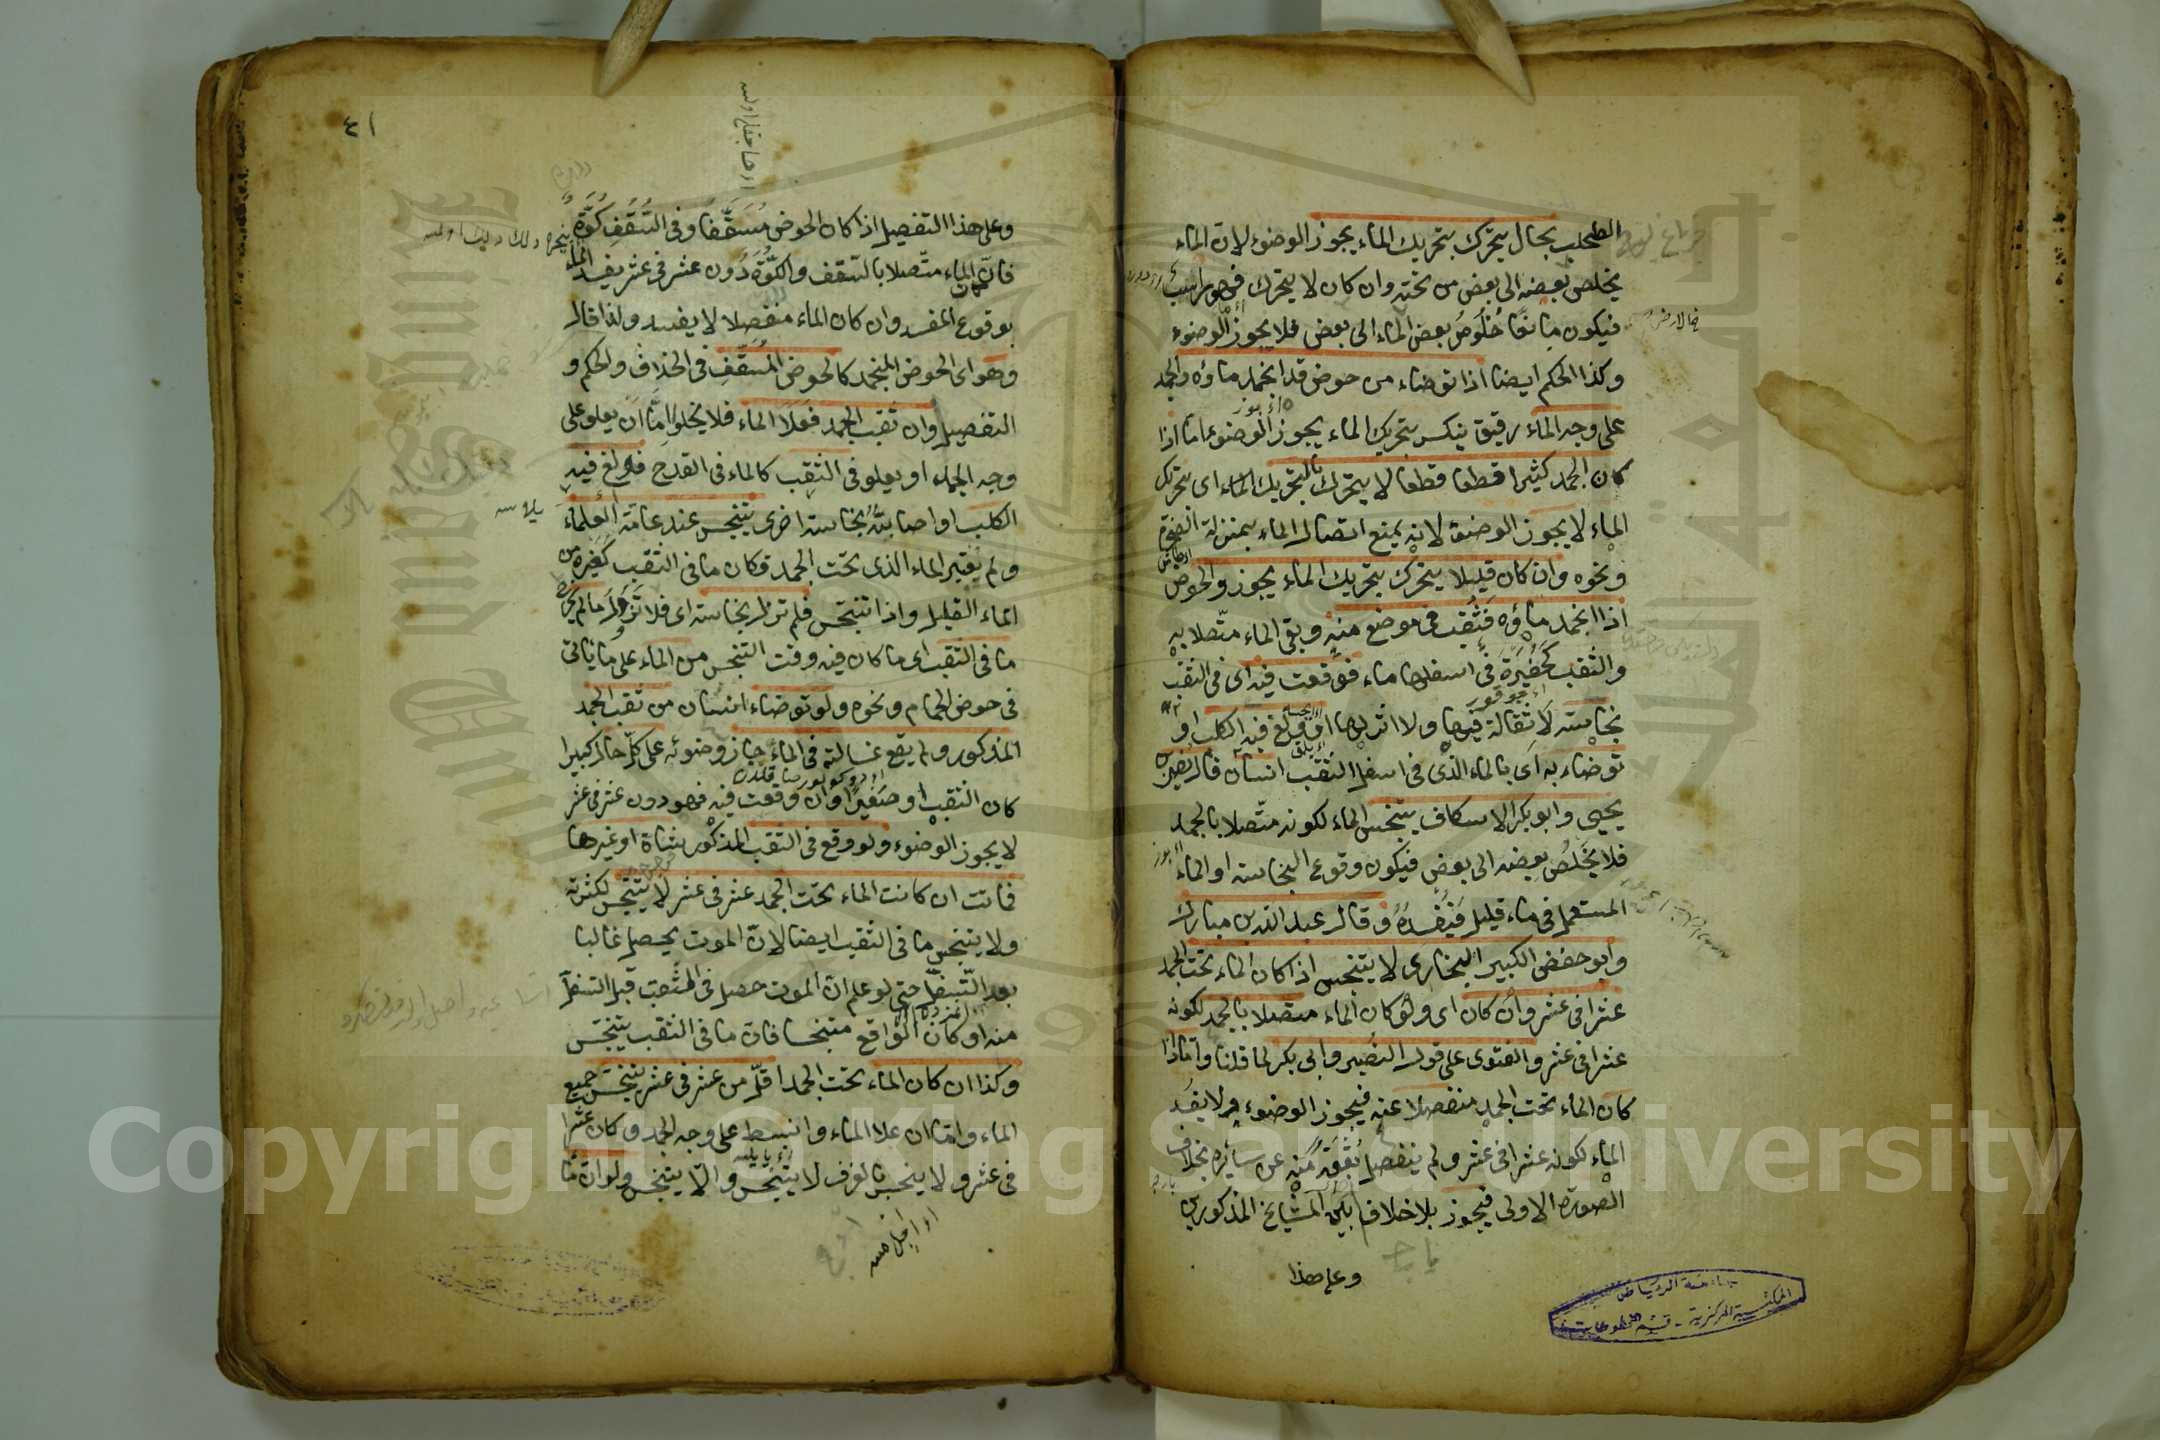 الطحلب بحال يتحرك بتحريك الماء يجوز الوضوء لان الماء
يخلص بعضه الى بعض من تحته وان كان لا يتحرك فهو راسب
فيكون مانعًا خُلُوصُ بعض الماء الى بعض فلا يجوز الوضوء
وكذا الحكم ايضا اذا توضاء من حوض قد انجمد ماؤه والجمد
على وجه الماء رقيق ينكسر بتحريك الماء يجوز الوضوء اما اذا
كان الجمد كثيرا قطعا قطعا لا يتحرك بالتحريك الماء اى بتحريك
الماء لا يجوز الوضوء لانه يمنع اتصال الماء بمنزلة الصخرة
ونحوه وان كان قليلا يتحرك بتحريك الماء يجوز والحوض
اذا انجمد ماؤه فثُقِب فى موضع منه وبقى الماء متصلا به
والثقب كحُفَيرَةٍ فى اسفلها ماء فوقعت فيه اى فى الثقب
نجاسته لا ثقالة فيها ولا اثر لها او ولغ فيه الكلب او
توضاء به اى بالماء الذى فى اسفل الثقب انسان قال نصير بن
يحيى وابو بكر الاسكاف يتنجس الماء لكونه متصلا بالجمد
فلا يَخلُصُ بعضه الى بعض فيكون وقوع النجاسته او الماء
المستعمل فى ماء قليل فيُفسده وقال عبد الله بن مبارك
وابو حفص الكبير البخارى لا يتنجس اذا كان الماء تحت الجمد
عشرا فى عشر وان كان اى ولو كان الماء متصلا بالجمد لكونه
عشرا فى عشر والفتوى على قول النصير وابى بكر لما قلنا واما اذا
كان الماء تحت الجمد منفصلا عنه فيجوز الوضوء ولا يفسد
الماء لكونه عشرا فى عشر ولم ينفصل بُقْعَة منه عن سائره بخلاف
الصورة الاولى فيجوز بلا خلاف بين المشايخ المذكورين
وعلى هذا
جامعة الرياض
المكتبة المركزية - قسم المخطوطات
٤١
وعلى هذا التفصيل اذا كان الحوض مُسَقَّفًا وفى السُّقُفِ كُوَّةٌ
فان كان الماء متصلا بالسقف والكُوَّةُ دُون عشر فى عشر يفسد الماء
بوقوع المفسد وان كان الماء منفصلا لا يفسد ولذا قال
وهو اى الحوض المنجمد كالحوض المُسَقَّفِ فى الخلاف والحكم و
التفصيل وان ثقب الجمد فعَلَا الماء فلا يخلوا امَّا ان يعلو على
وجه الجمد او يعلو فى الثقب كالماء فى القدح فولغ فيه
الكلب او اصابتهُ نجاسته اخرى يتنجس عند عامة العلماء
ولم يعتبر الماء الذى تحت الجمد فكان ما فى الثقب كغيره من
الماء القليل واذا تنجس فلم تزل نجاسته اى فلا تَزُولُ ما لم يخرج
ما فى الثقب اى ما كان فيه وقت التنجس من الماء على ما يأتى
فى حوض الحمام ونحوه ولو توضاء انسان من ثقب الجمد
المذكور ولم يقع غسالته فى الماء جاز وضوئه على كل حال كبيرا
كان الثقب او صغيرًا وان وقعت فيه فهو دون عشر فى عشر
لا يجوز الوضوء ولو وقع فى الثقب المذكور شاة او غيرها
فماتت ان كانت الماء تحت الجمد عشر فى عشر لا يتنجس لكثرته
ولا يتنجس ما فى الثقب ايضا لان الموت يحصل غالبا
بعد التسفّل حتى لو علم ان الموت حصل فى الثقب قبل التسفل
منه او كان الواقع متنجسا فان ما فى الثقب يتنجس
وكذا ان كان الماء تحت الجمد اقل من عشر فى عشر يتنجس جميع
الماء واما ان علا الماء وانبسط على وجه الجمد وكان عشرا
فى عشر ولا ينحسر بالغرف لا يتنجس والّا يتنجس ولو ان ما
Copyright © King Saud University